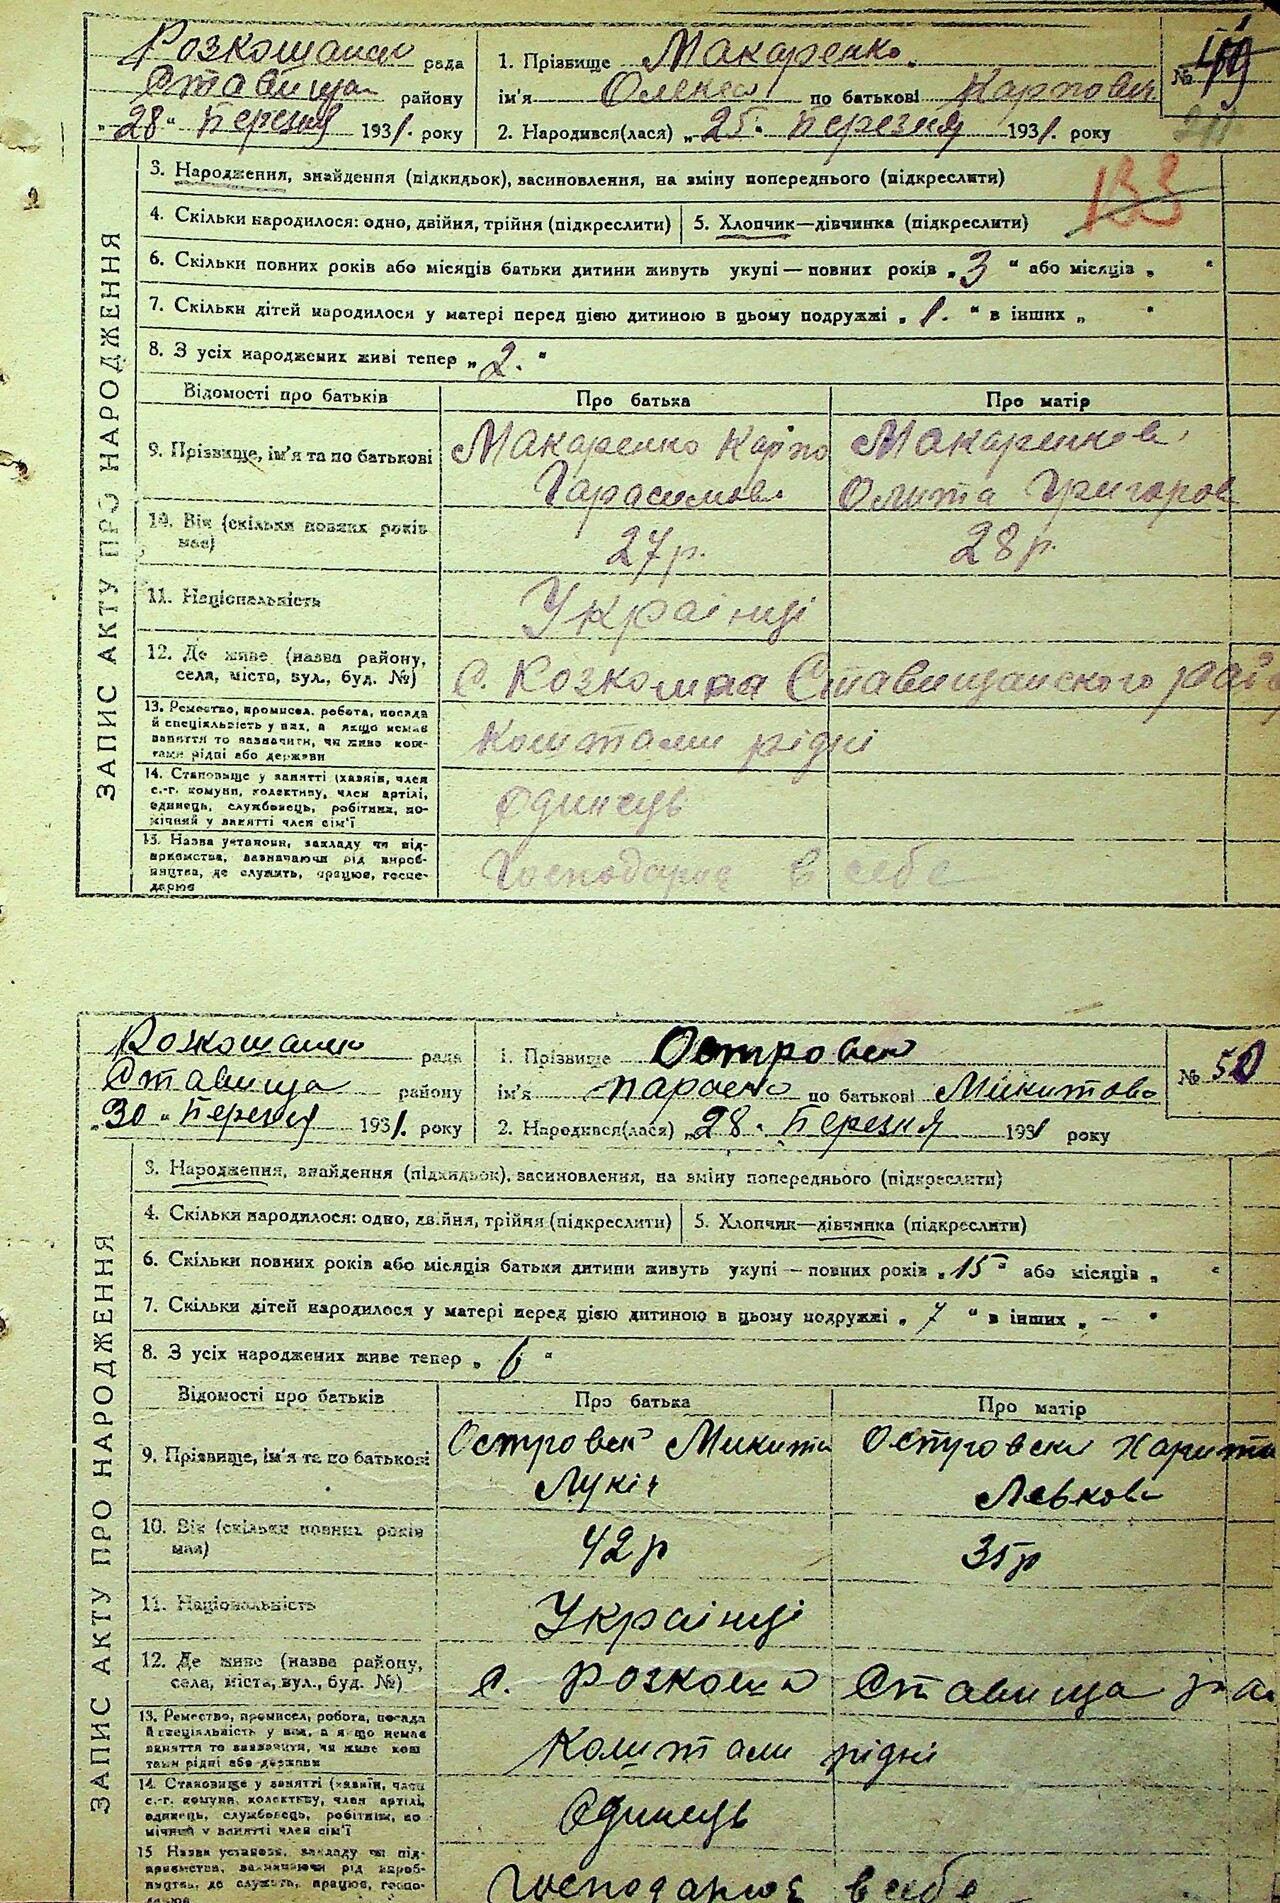 Розкошани рада
Ставища району
"28" Березня 1931. року
1. Прізвище Макаренко.
ім'я Олекса по батькові Карпович
2. Народився(лася) "25" Березня 1931. року
№
133
ЗАПИС АКТУ ПРО НАРОДЖЕННЯ
3. Народження, знайдення (підкидьок), засиновлення, на зміну попереднього (підкреслити)
4. Скільки народилося: одно, двійня, трійня (підкреслити) 5. Хлопчик—дівчинка (підкреслити)
6. Скільки повних років або місяців батьки дитини живуть укупі — повних років „3“ або місяців „ “
7. Скільки дітей народилося у матері перед цією дитиною в цьому подружжі „1.“ в інших „ “
8. З усіх народжених живі тепер „2.“
Відомості про батьків Про батька Про матір
9. Прізвище, ім'я та по батькові Макаренко Карпо Макаренкова
Гарасимов. Олита Григоров
10. Вік (скільки повних років
має) 27 р. 28 р.
11. Національність Українці
12. Де живе (назва району,
села, міста, вул., буд. №) С. Розкошна Ставищанского рай
13. Ремество, промисел, робота, посада
й спеціяльність у них, а якщо немає
заняття то зазначити, чи живе кош-
тами рідні або держави
Коштами рідні
14. Становище у занятті (хазяїн, член
с.-г. комуни, колективу, член артілі,
одинець, службовець, робітник, по-
мічний у занятті член сім'ї
Одинець
15. Назва установи, закладу чи під-
приємства, зазначаючи рід вироб-
ництва, де служить, працює, госпо-
дарює
Господарює в себе
Розкошани рада
Ставища району
"30" Березня 1931. року
1. Прізвище Островск
ім'я Параска по батькові Микитова
2. Народився(лася) "28" Березня 1931 року
№ 50
ЗАПИС АКТУ ПРО НАРОДЖЕННЯ
3. Народження, знайдення (підкидьок), засиновлення, на зміну попереднього (підкреслити)
4. Скільки народилося: одно, двійня, трійня (підкреслити) 5. Хлопчик—дівчинка (підкреслити)
6. Скільки повних років або місяців батьки дитини живуть укупі — повних років „15“ або місяців „ “
7. Скільки дітей народилося у матері перед цією дитиною в цьому подружжі „7“ в інших „ – “
8. З усіх народжених живе тепер „6“
Відомості про батьків Про батька Про матір
9. Прізвище, ім'я та по батькові Островск Микита Островска Харита
Лукіч Левкова
10. Вік (скільки повних років
має) 42 р 35 р
11. Національність Українці
12. Де живе (назва району,
села, міста, вул., буд. №) С. Розкошна Ставища
13. Ремество, промисел, робота, посада
й спеціяльність у них, а якщо немає
заняття то зазначити, чи живе кош
тами рідні або держави
Коштами рідні
14. Становище у занятті (хазяїн, член
с.-г. комуни, колективу, член артілі,
одинець, службовець, робітник, по
мічний у занятті член сім'ї
Одинець
15 Назва установи, закладу чи під-
приємства, зазначаючи рід вироб-
ництва, де служить, працює, госпо-
Господарює в себе